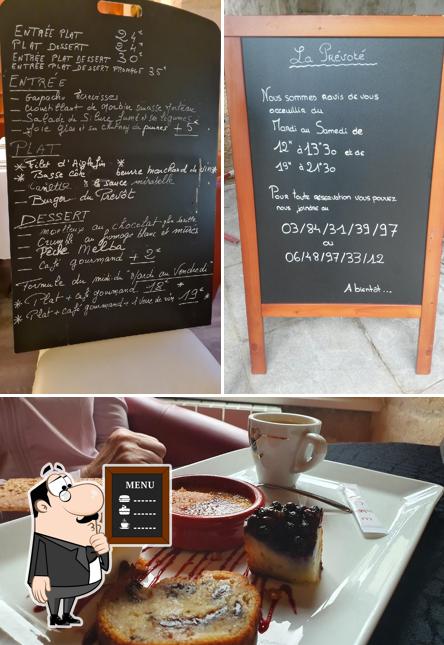 ENTRÉE PLAT 24€
PLAT DESSERT 24€
ENTRÉE PLAT DESSERT 30€
ENTRÉE PLAT DESSERT FROMAGE 35€
ENTRÉE
Gaspacho
Croustillant de Morbier saucisse Morteau
Salade de Silure fumé et ses légumes
Foie Gras et son chutney de prunes + 5€
PLAT
* Filet d'Aiglefin *
* Basse Côte beurre marchand de vin *
à la sauce mirabelle
Burger du Prévôt
DESSERT
moelleux au chocolat
Crumble au fromage blanc et mûres
Pêche Melba
Café gourmand + 2€
Formule du midi du Mardi au Vendredi
* Plat + café gourmand 18€ *
* Plat + café gourmand + 1 Verre de vin 19€ *
La Prévoté
Nous sommes ravis de vous
accueillir du
Mardi au Samedi de
12H à 13H30 et de
19H à 21H30
Pour toute réservation vous pouvez
nous joindre au
03/84/31/39/97
ou
06/48/97/33/12
A bientôt...
MENU